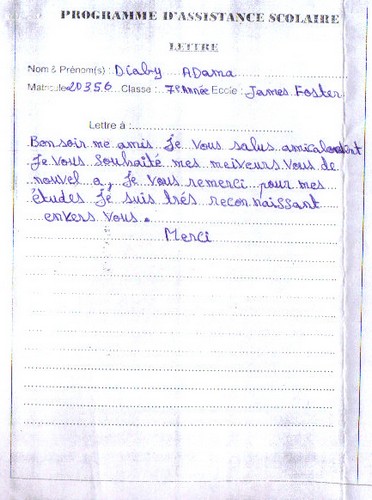 PROGRAMME D'ASSISTANCE SCOLAIRE
LETTRE
Nom & Prénom(s) : Diaby ADama
Matricule 20356 Classe : 7e Année Ecole : James Foster
Lettre à :
Bonsoir me amis Je vous salus amicalement
Je vous souhaité mes meiveurs vous de
nouvel a, Je vous remerci pour mes
études Je suis trés reconnaissant
enkers vous.
Merci